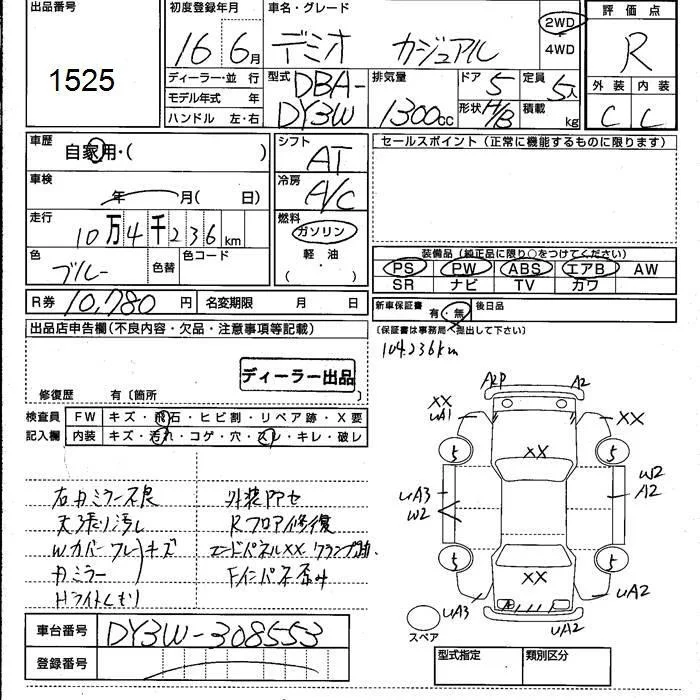 出品番号
1525
初度登録年月
16 6月
車名・グレード
デミオ カジュアル
2WD
4WD
評価点
R
外装 内装
C C
ディーラー・並行
モデル年式 年
ハンドル 左・右
型式
DBA-
DY3W
排気量
1300cc
ドア 5
形状 H/B
定員 5人
積載 kg
車歴
自家用・( )
車検
年 月( 日)
走行
10万4千236km
色
ブルー
色替
色コード
シフト
AT
冷房
A/C
燃料
ガソリン
軽・油
( ・ )
R券 10,780円
名変期限 月 日
セールスポイント(正常に機能するものに限ります)
装備品(純正品に限り○をつけてください)
PS PW ABS エアB AW
SR ナビ TV カワ
新車保証書 有・無
後日品
(保証書は事務局へ提出して下さい)
104,236km
出品店申告欄(不良内容・欠品・注意事項等記載)
ディーラー出品
修復歴 有〔箇所 〕
検査員
記入欄
FW キズ・飛石・ヒビ割・リペア跡・X要
内装 キズ・汚れ・コゲ・穴・スレ・キレ・破レ
右カミラー不良
天張り汚し
Wカバー フレ キズ
カミラー
Hライトくもり
外装PPセ
Rフロア修復
エンドパネルXX
Fインパネ歪み
A2P A2
XX
uA1
XX
5 5
XX
uA3
W2
W2
A2
5 5
XX
uA3
uA2
A
uA2
スペア
車台番号 DY3W-308553
登録番号
型式指定 類別区分